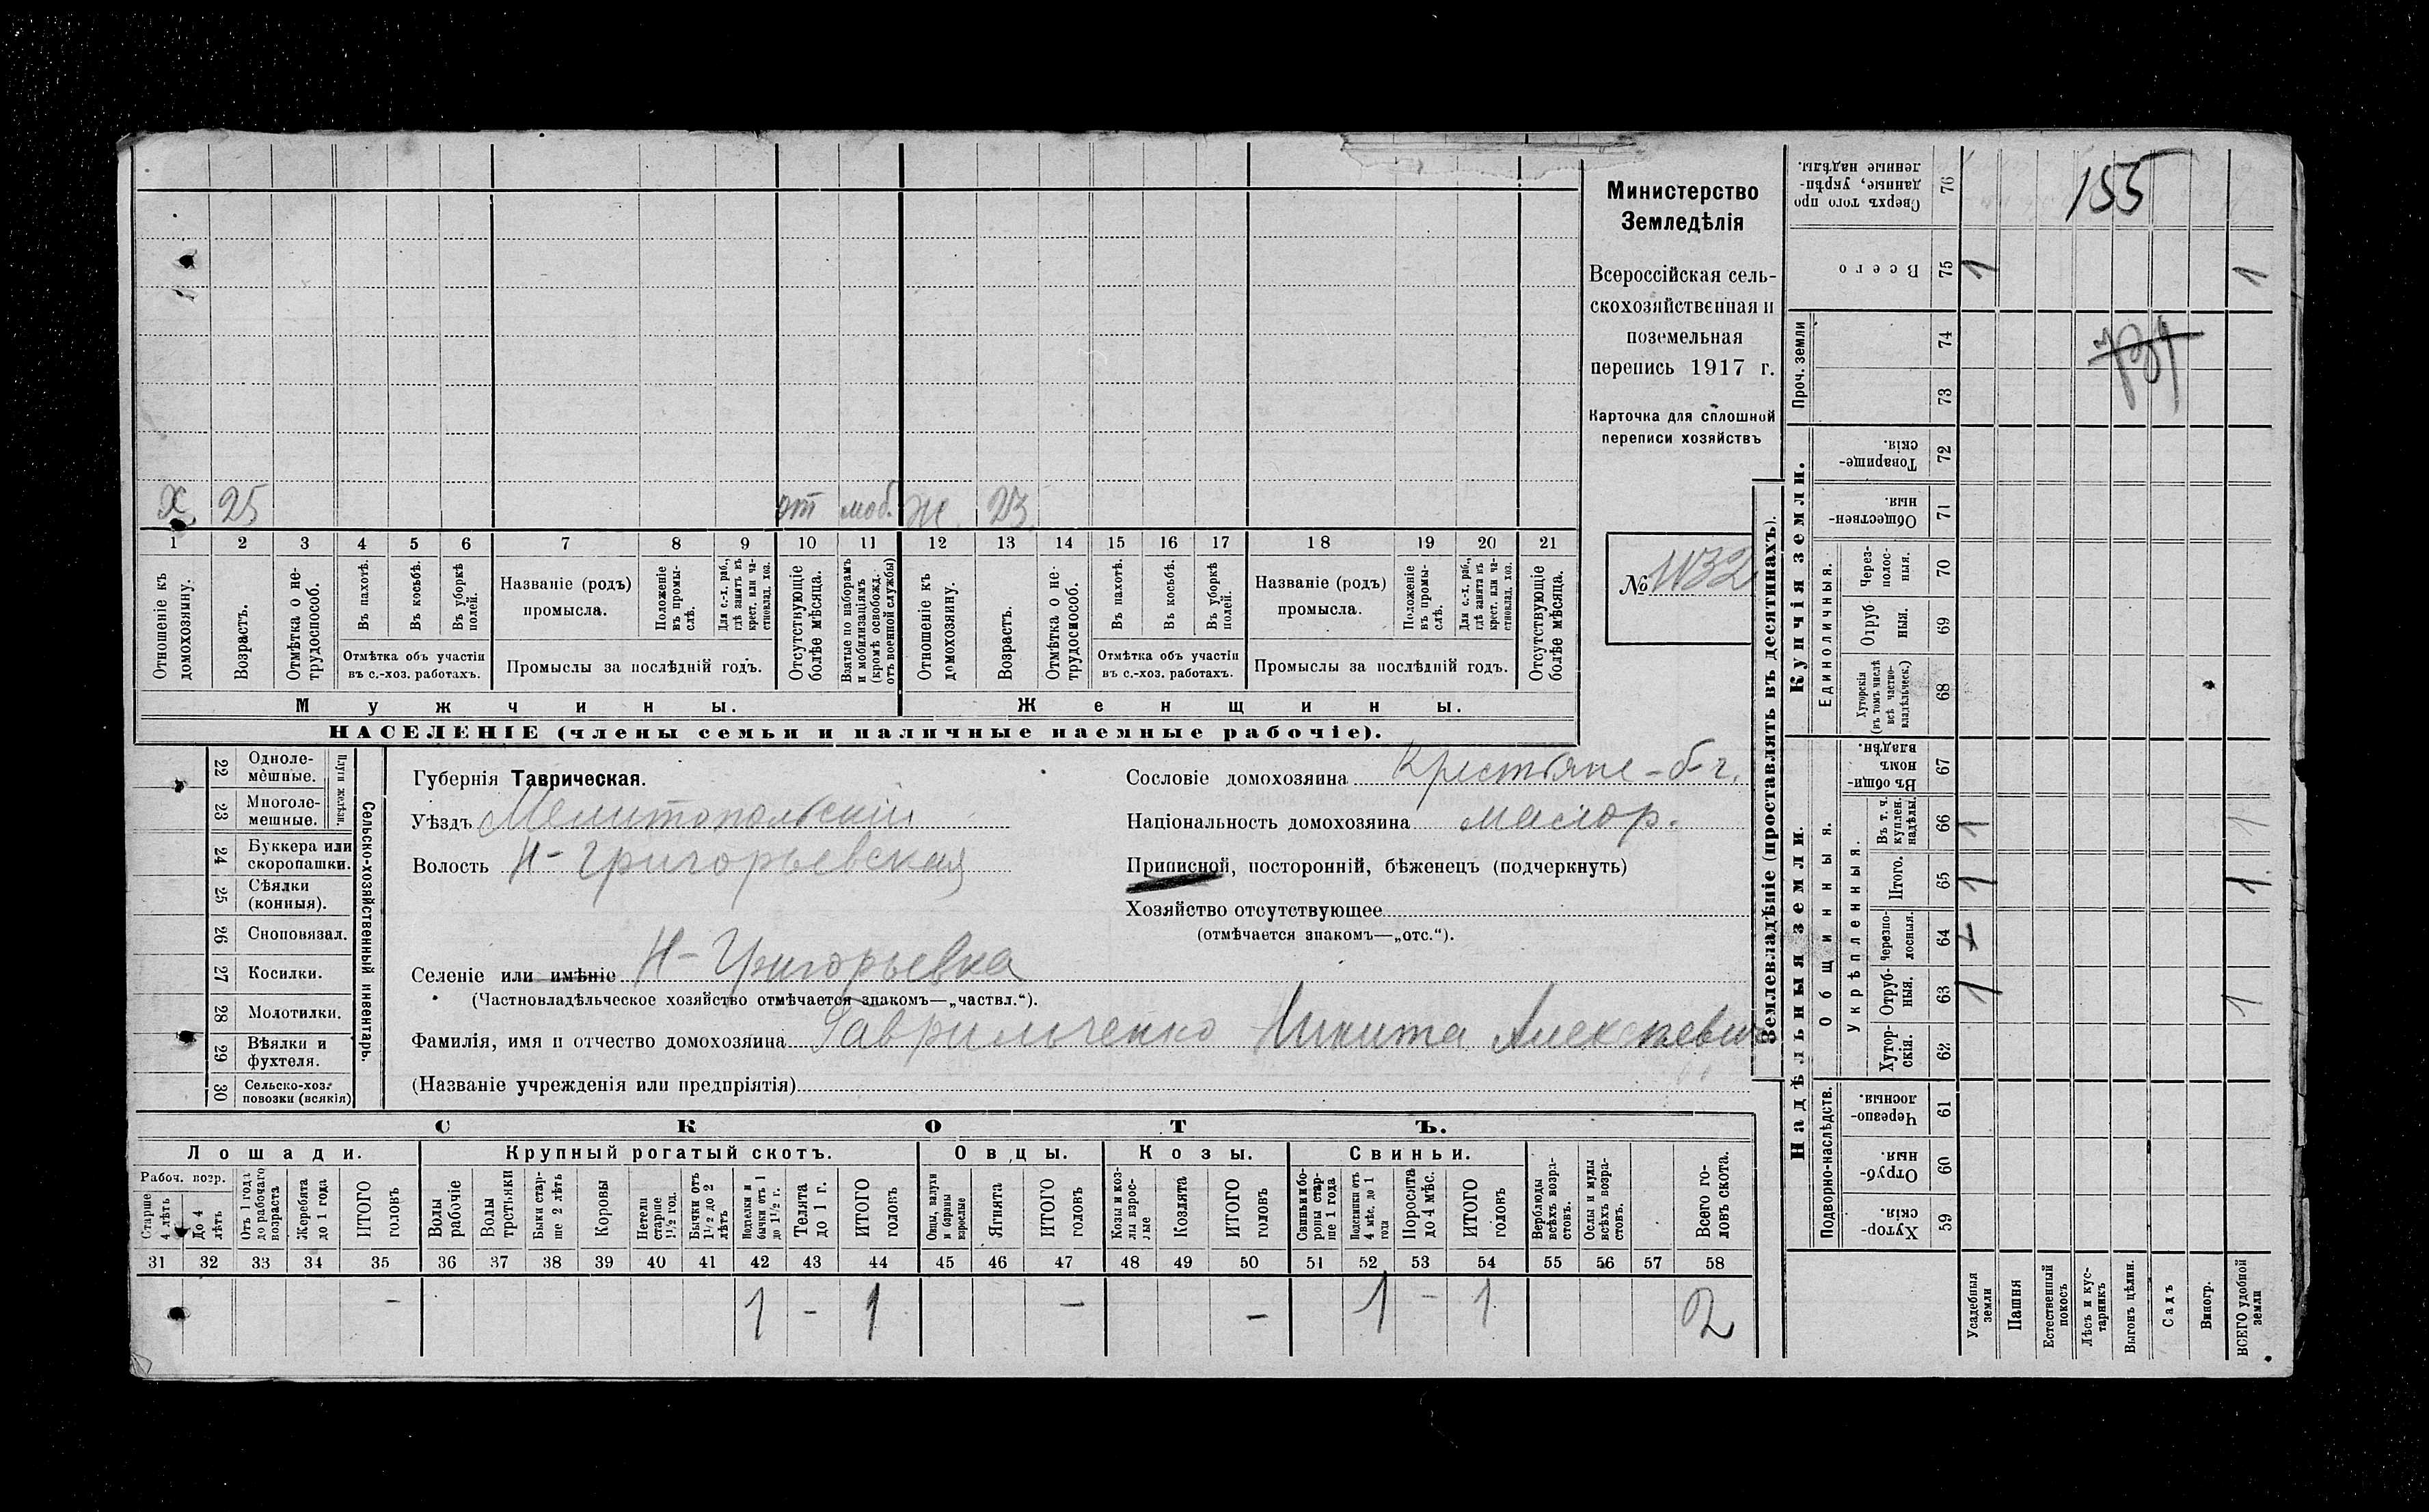 Х. 25 от моб. Ж. 23.
1 2 3 4 5 6 7 8 9 10 11 12 13 14 15 16 17 18 19 20 21
Отношеніе къ домохозяину.
Возрастъ.
Отмѣтка о не-
трудоспособ.
Въ пахотѣ.
Въ косьбѣ.
Въ уборкѣ полей.
Отмѣтка объ участіи
въ с.-хоз. работахъ.
Названіе (родъ)
промысла.
Положеніе въ промы-
слѣ.
Для с.-х. раб.,
гдѣ занятъ въ
крест. или ча-
стновлад. хоз.
Промыслы за послѣдній годъ.
Отсутствующіе
болѣе мѣсяца.
Взятые по наборамъ
и мобилизаціямъ
(кромѣ освобожд.
отъ военной службы)
Отношеніе къ
домохозяину.
Возрастъ.
Отмѣтка о не-
трудоспособ.
Въ пахотѣ.
Въ косьбѣ.
Въ уборкѣ полей.
Отмѣтка объ участіи
въ с.-хоз. работахъ.
Названіе (родъ)
промысла.
Положеніе въ промы-
слѣ.
Для с.-х. раб.,
гдѣ занята въ
крест. или ча-
стновлад. хоз.
Промыслы за послѣдній годъ.
Отсутствующіе
болѣе мѣсяца.
Мужчины.
Женщины.
НАСЕЛЕНІЕ (члены семьи и наличные наемные рабочіе).
Министерство
Земледѣлія
Всероссійская сель-
скохозяйственная и
поземельная
перепись 1917 г.
Карточка для сплошной
переписи хозяйствъ
№
22 Одноле-
мешные.
23 Многоле-
мешные.
Плуги желѣзн.
24 Буккера или
скоропашки.
25 Сѣялки
(конныя).
26 Сноповязал.
27 Косилки.
28 Молотилки.
29 Вѣялки и
фухтеля.
30 Сельско-хоз.
повозки (всякія)
Сельско-хозяйственный инвентарь.
Губернія Таврическая.
Уѣздъ Мелитопольскій
Волость Н-Григорьевская
Селеніе или имѣніе Н-Григорьевка
(Частновладѣльческое хозяйство отмѣчается знакомъ—„частвл.“).
Фамилія, имя и отчество домохозяина Гаврильченко Никита Алексѣевич
(Названіе учрежденія или предпріятія)
Сословіе домохозяина Крестьяне-б-г.
Національность домохозяина малор.
Приписной, посторонній, бѣженецъ (подчеркнуть)
Хозяйство отсутствующее
(отмѣчается знакомъ—„отс.“).
СКОТЪ.
Лошади. Крупный рогатый скотъ. Овцы. Козы. Свиньи.
Рабоч. возр.
Старше
4 лѣтъ
До 4
лѣтъ
Отъ 1 года
до рабочаго
возраста
Жеребята
до 1 года
ИТОГО
головъ
Волы
рабочіе
Волы
третьяки
Быки стар-
ше 2 лѣтъ
Коровы
Нетели
старше
1½ год.
Бычки отъ
1½ до 2
лѣтъ
Подтелки и
бычки отъ 1
до 1½ г.
Телята
до 1 г.
ИТОГО
головъ
Овцы, валухи
и бараны
взрослые
Ягнята
ИТОГО
головъ
Козы и коз-
лы взрос-
лые
Козлята
ИТОГО
головъ
Свиньи и бо-
ровы стар-
ше 1 года
Подсвинки отъ
4 мѣс. до 1
года
Поросята
до 4 мѣс.
ИТОГО
головъ
Верблюды
всѣхъ возра-
стовъ.
Ослы и мулы
всѣхъ возра-
стовъ.
Всего го-
ловъ скота.
31 32 33 34 35 36 37 38 39 40 41 42 43 44 45 46 47 48 49 50 51 52 53 54 55 56 57 58
- 1 - 1 - - 1 - 1 2
Землевладѣніе (проставлять въ десятинахъ).
Сверхъ того про
данные, укрѣп-
ленные надѣлы.
76
155
Всего
75
1 1
Проч. земли
74
73
Купчія земли.
Товарище-
скія.
72
Обществен-
ныя.
71
Единоличныя.
Через-
полос-
ныя.
70
Отруб-
ныя.
69
Хуторскія
(въ томъ числѣ
всѣ частно-
владѣльческ.)
68
Надѣльныя земли.
Общинныя.
Въ общин-
номъ
владѣн.
67
Укрѣпленныя.
Въ т. ч.
куплен.
надѣлы.
66
1 1
Итого.
65
1 1
Черезпо-
лосныя.
64
Отруб-
ныя.
63
1 1
Хутор-
скія.
62
Подворно-наслѣдств.
Черезпо-
лосныя.
61
Отруб-
ныя.
60
Хутор-
скія.
59
Усадебныя
земли
Пашня
Естественный
покосъ
Лѣсъ и кус-
тарникъ
Выгонъ цѣлин.
Садъ
Виногр.
ВСЕГО удобной
земли